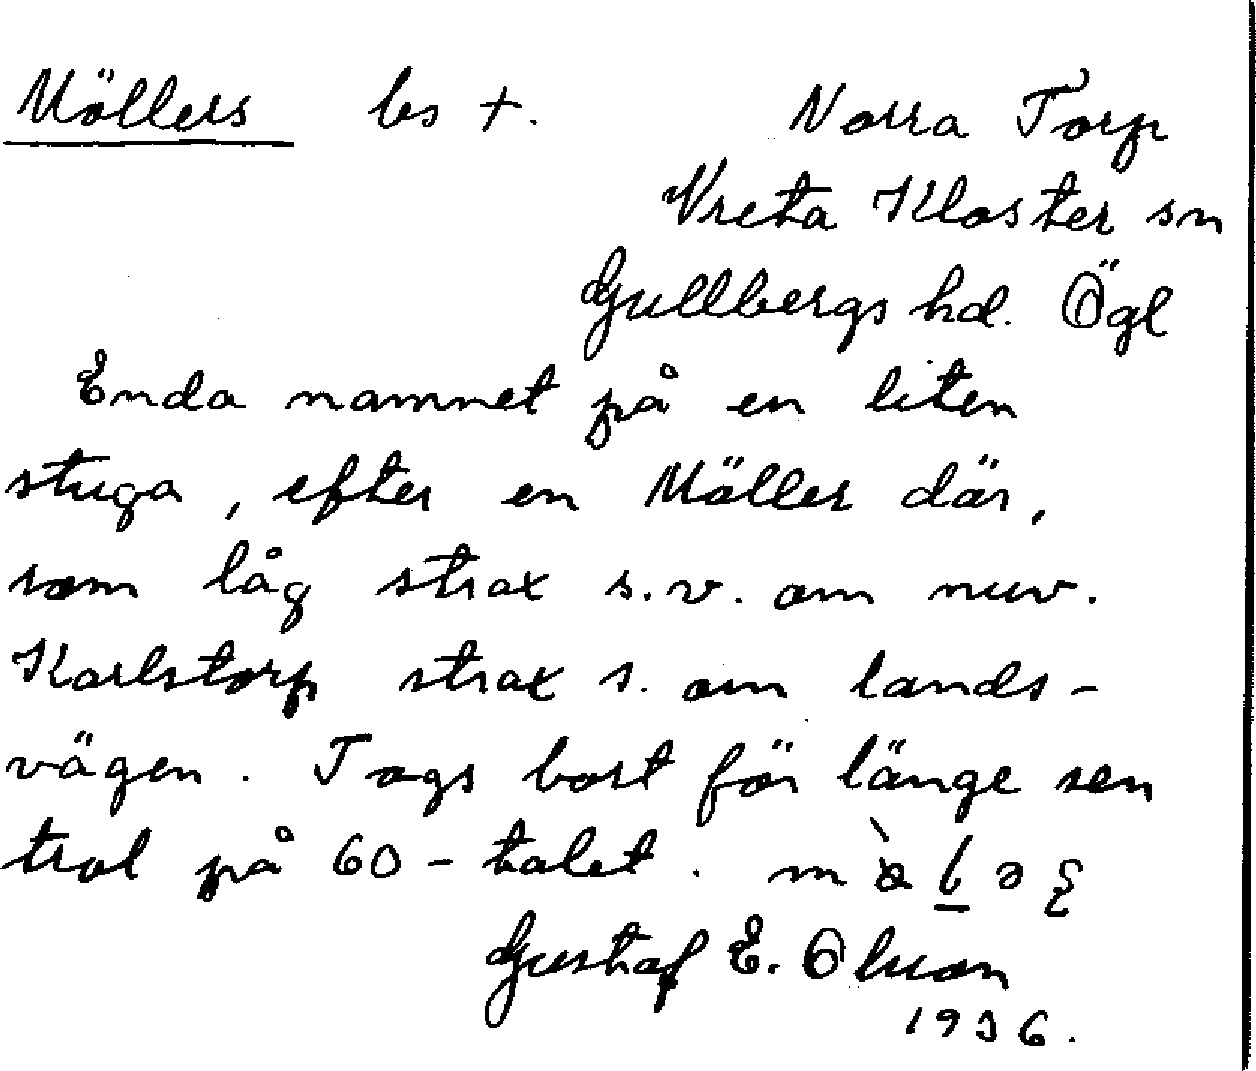 Möllers bs +. Norra Torp
Vreta Kloster sn
Gullbergs hd. Ögl
Enda namnet på en liten
stuga, efter en Möller där,
som låg strax s.v. om nuv.
Karlstorp strax s. om lands-
vägen. Togs bort för länge sen
trol på 60-talet.
Gustaf E. Olsson
1936.